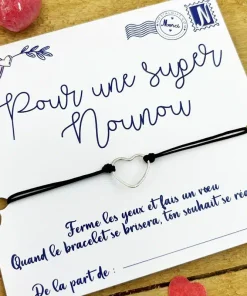 Merci
N
Pour une super
Nounou
Ferme les yeux et fais un vœu
Quand le bracelet se brisera, ton souhait se
De la part de :